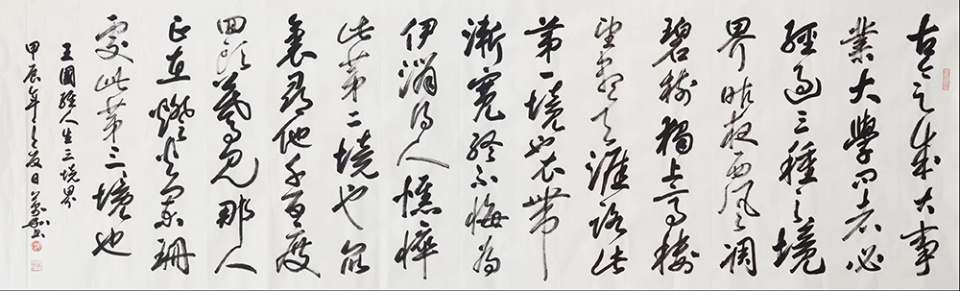 古今之成大事
業大學問者必
經過三種之境
界昨夜西風凋
碧樹獨上高樓
望盡天涯路此
第一境也衣帶
漸寬終不悔為
伊消得人憔悴
此第二境也眾
裏尋他千百度
回頭驀見那人
正在燈火闌珊
處此第三境也
王國維人生三境界
甲辰年之夏日